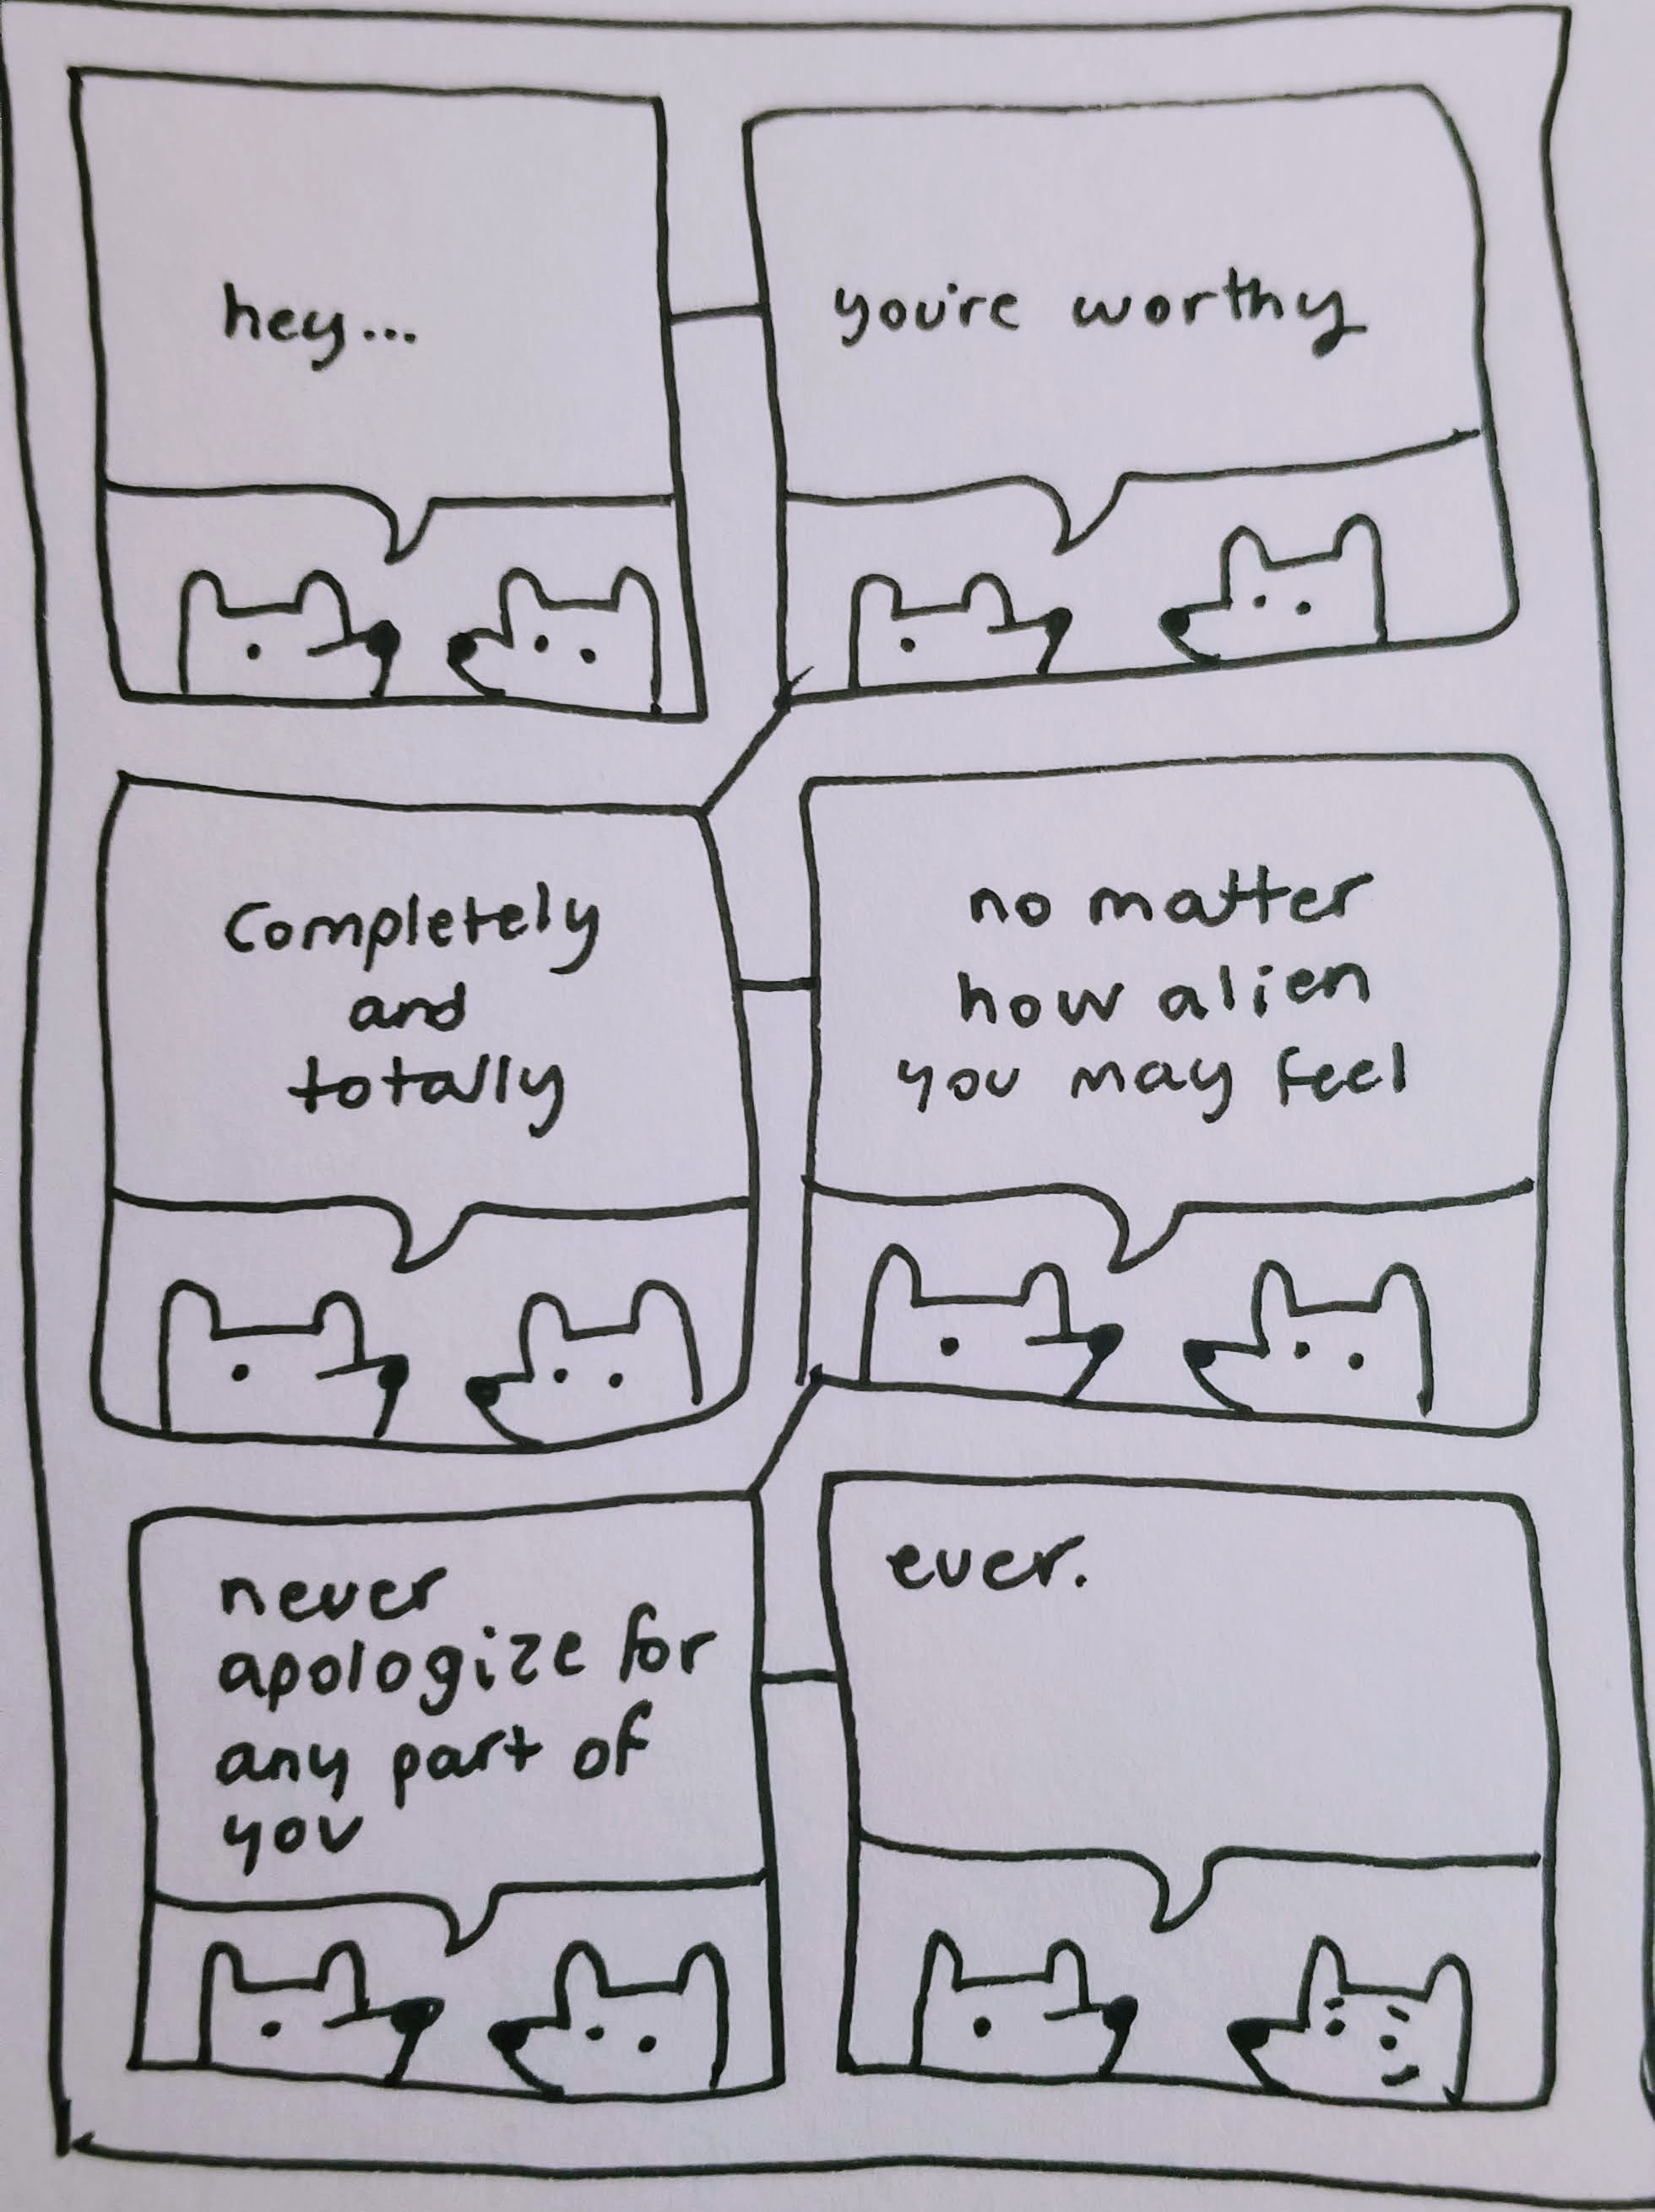 hey...
you're worthy
Completely
and
totally
no matter
how alien
you may feel
never
apologize for
any part of
you
ever.